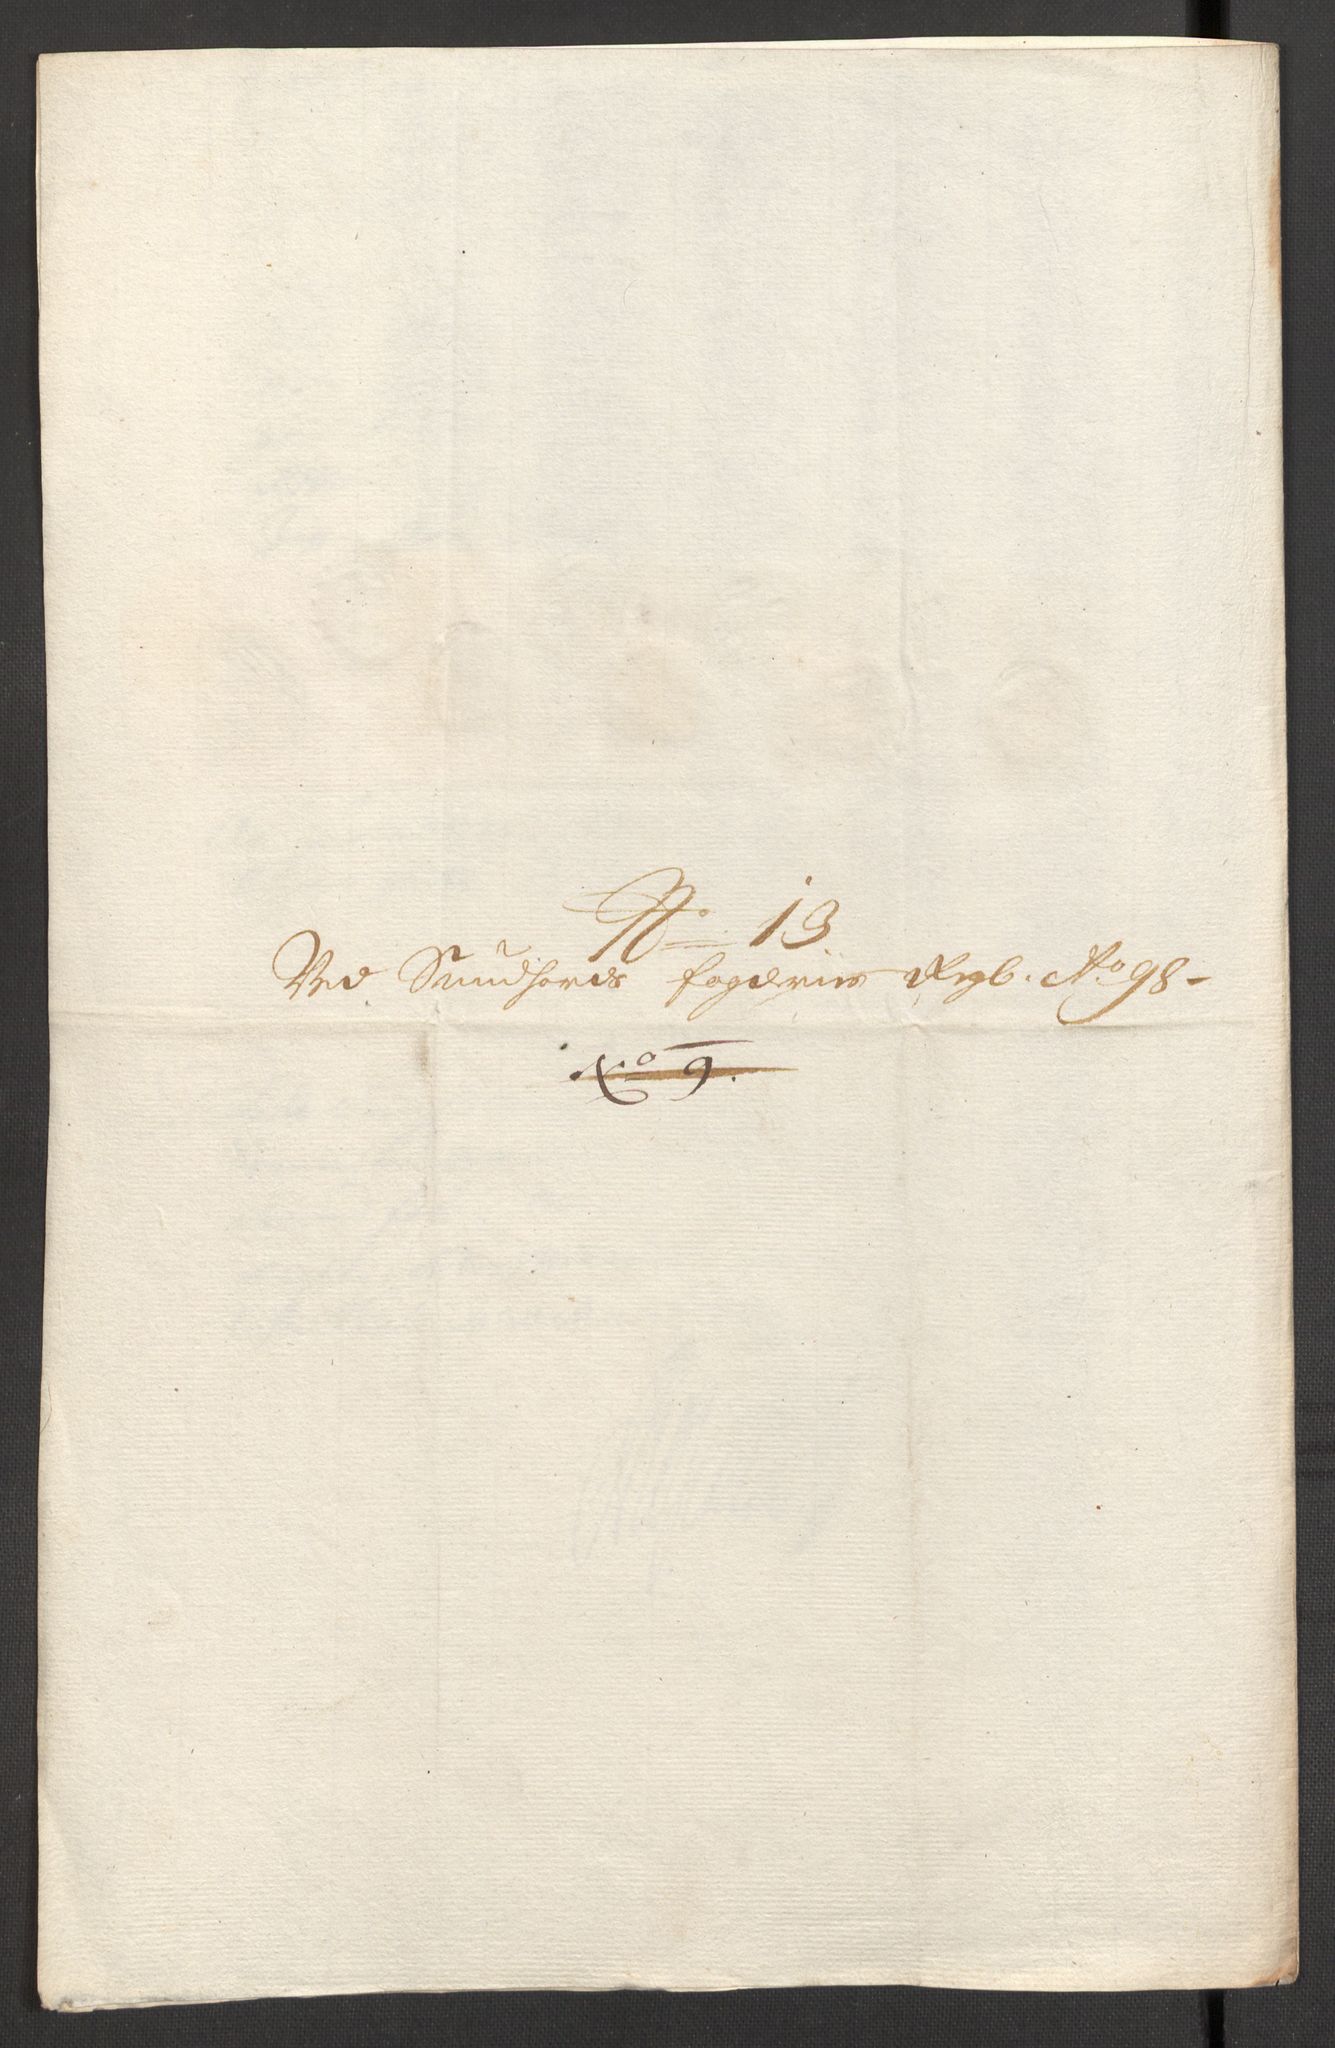 No 13
Ved Sundhords fogderies Regb. Ao 98-
No 9.